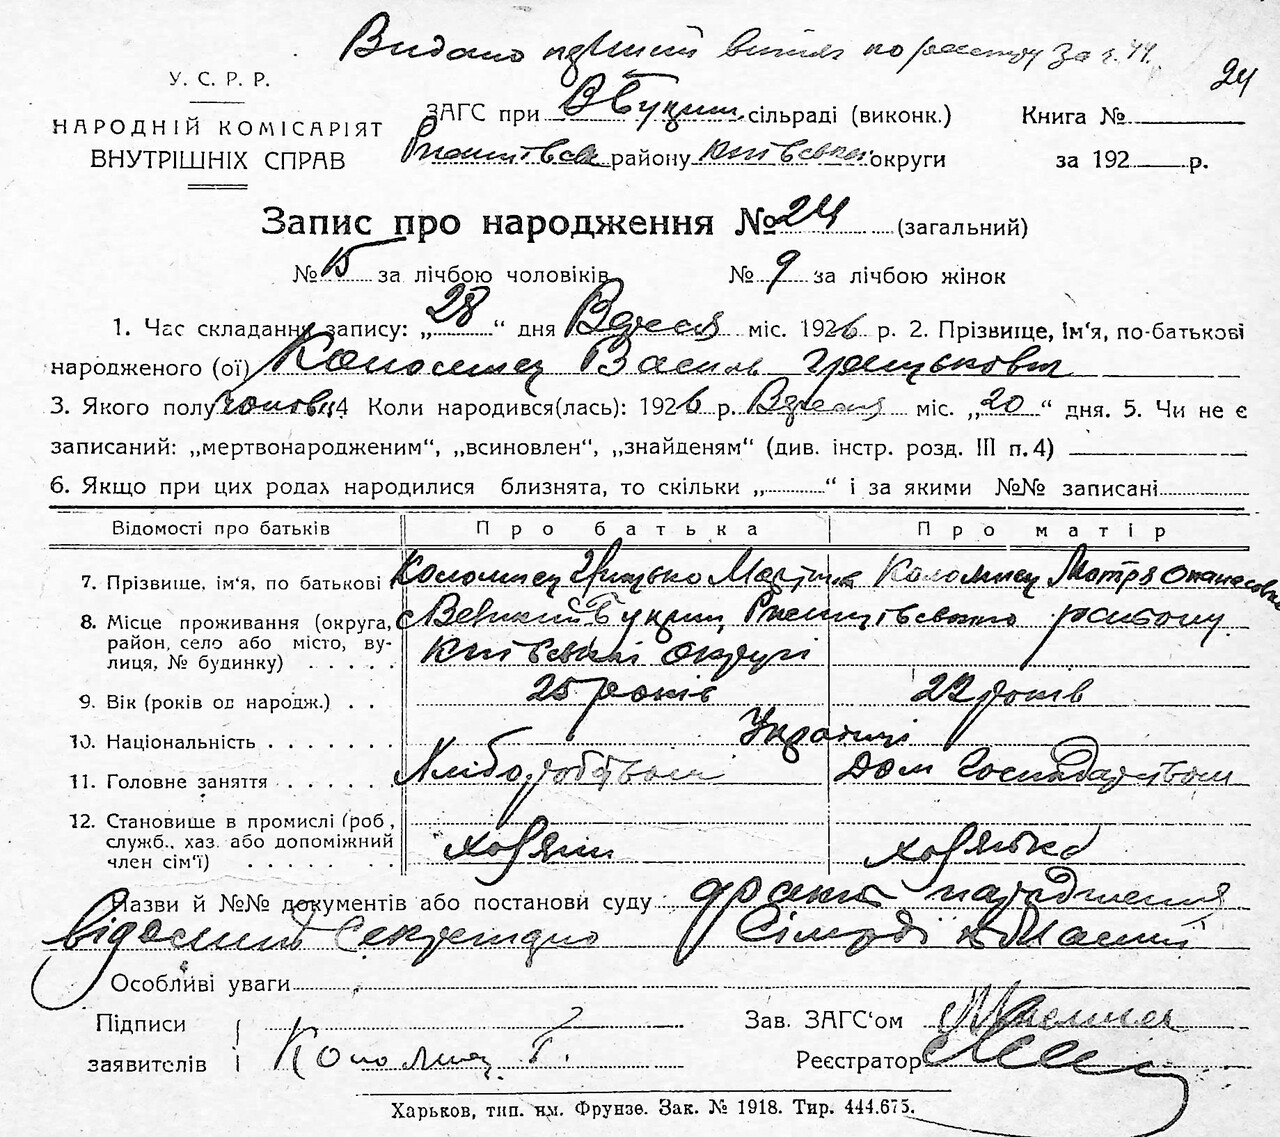 Видано перший витяг по реєстру за ч. 44.
24
У. С. Р. Р.
НАРОДНІЙ КОМІСАРІЯТ
ВНУТРІШНІХ СПРАВ
ЗАГС при В Букрин. сільраді (виконк.)
Ржищівськ району Київської округи
Книга №
за 192 р.
Запис про народження № 24 (загальний)
№ 15 за лічбою чоловіків № 9 за лічбою жінок
1. Час складання запису: „28“ дня Вересня міс. 1926 р. 2. Прізвище, ім'я, по-батькові
народженого (ої) Коломиец Василь Грицькович
3. Якого полу чолов. 4 Коли народився(лась): 1926 р. Вересня міс. „20“ дня. 5. Чи не є
записаний: „мертвонародженим“, „всиновлен“, „знайденям“ (див. інстр. розд. III п. 4)
6. Якщо при цих родах народилися близнята, то скільки „ “ і за якими №№ записані
Відомості про батьків Про батька Про матір
7. Прізвище, ім'я, по батькові Коломиец Грицько Коломиец Мотря Опанасовна
8. Місце проживання (округа, район, село або місто, вулиця, № будинку) с Великий Букрин, Ржищівського району
Київської округи
9. Вік (років од народж.) 25 років 22 років
10. Національність Українці
11. Головне заняття Хліборобством Дом Господарством
12. Становище в промислі (роб, служб., хаз. або допоміжний член сім'ї) хозяїн хозяйка
Назви й №№ документів або постанови суду факт народження
відомий Секретарю Сільради
Особліві уваги
Підписи заявителів Коломиец Г.
Зав. ЗАГС'ом
Реєстратор
Харьков, тип. им. Фрунзе. Зак. № 1918. Тир. 444.675.